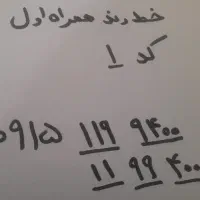 خط رند همراه اول
کد ۱
۰۹۱۵ ۱۱۹ ۹۴۰۰
۱۱ ۹۹ ۴۰۰